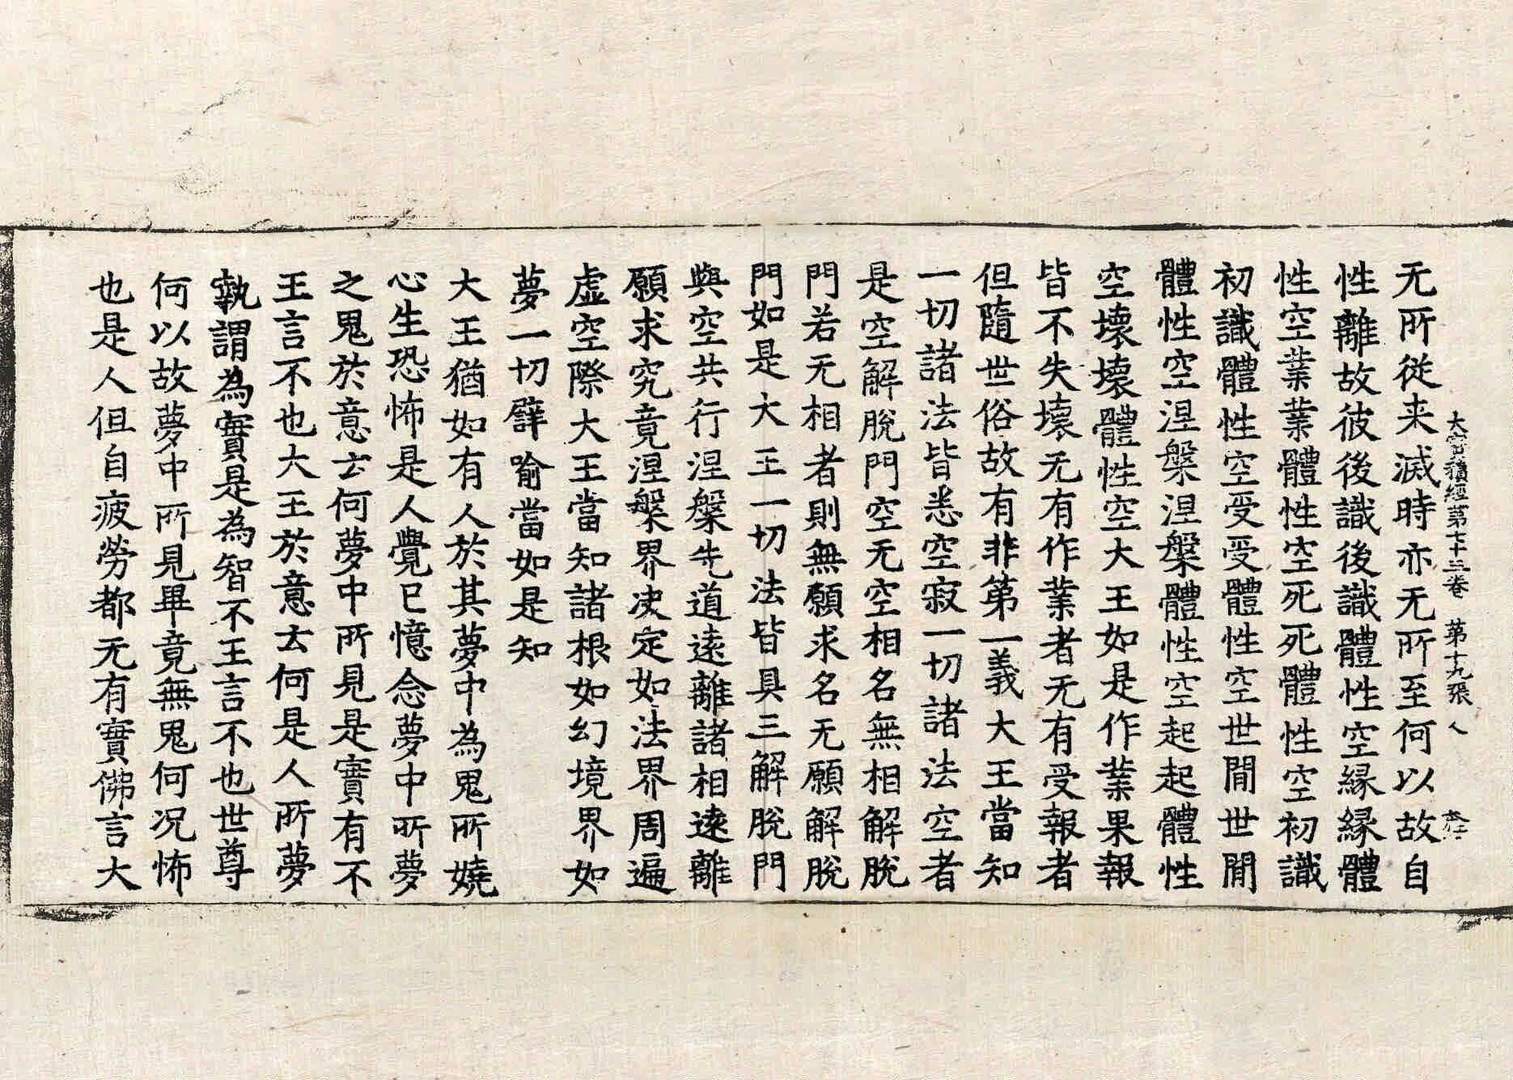 大寶積經第七十三卷 第十九張
无所従来滅時亦无所至何以故自
性離故彼後識後識體性空縁縁體
性空業業體性空死死體性空初識
初識體性空受受體性空世間世間
體性空涅槃涅槃體性空起起體性
空壞壞體性空大王如是作業果報
皆不失壞无有作業者无有受報者
但隨世俗故有非第一義大王當知
一切諸法皆悉空寂一切諸法空者
是空解脫門空无空相名無相解脫
門若无相者則無願求名无願解脫
門如是大王一切法皆具三解脫門
與空共行涅槃先道遠離諸相遠離
願求究竟涅槃界决定如法界周遍
虛空際大王當知諸根如幻境界如
夢一切譬喻當如是知
大王猶如有人於其夢中為鬼所嬈
心生恐怖是人覺已憶念夢中所夢
之鬼於意云何夢中所見是實有不
王言不也大王於意云何是人所夢
執謂為實是為智不王言不也世尊
何以故夢中所見畢竟無鬼何况怖
也是人但自疲勞都无有實佛言大